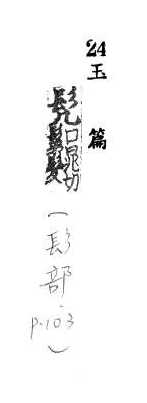 24
玉篇
髡口昆切
髮
(髟部・
p.103)